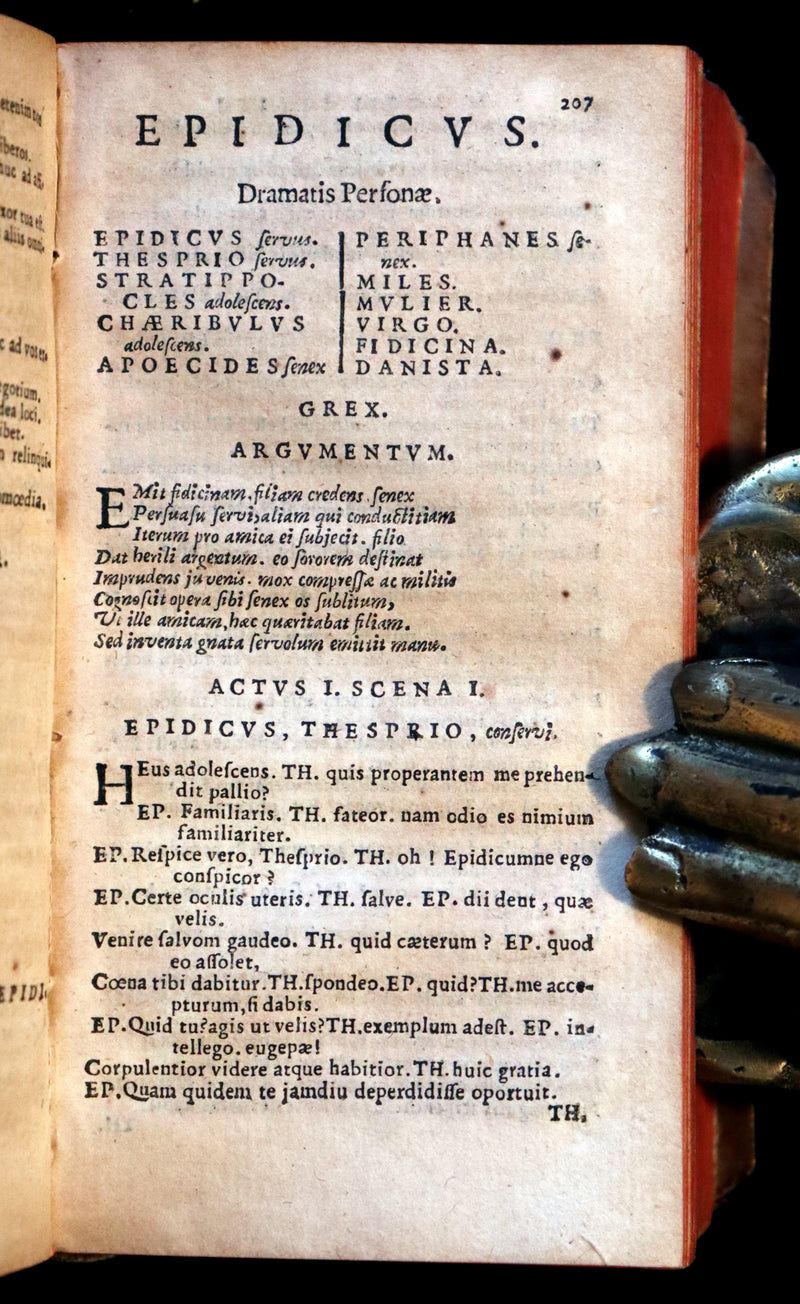 207
EPIDICVS.
Dramatis Perſonæ.
EPIDICVS ſervus.
THESPRIO ſervus.
STRATIPPO-
CLES adoleſcens.
CHÆRIBVLVS
adoleſcens.
APOECIDES ſenex
PERIPHANES ſe-
nex.
MILES.
MVLIER.
VIRGO.
FIDICINA.
DANISTA.
GREX.
ARGVMENTVM.
EMit fidicinam, filiam credens ſenex
Perſuaſu ſervi, aliam qui conductitiam
Iterum pro amica ei ſubjecit. filio
Dat herili argentum. eo ſororem deſtinat
Imprudens juvenis. mox compreſſæ ac militis
Cognoſcit opera ſibi ſenex os ſublitum,
Vt ille amicam, hæc quæritabat filiam.
Sed inventa gnata ſervolum emittit manu.
ACTVS I. SCENA I.
EPIDICVS, THESPRIO, conſervi.
HEus adoleſcens. TH. quis properantem me prehen-
dit pallio?
EP. Familiaris. TH. fateor. nam odio es nimium
familiariter.
EP. Reſpice vero, Theſprio. TH. oh ! Epidicumne ego
conſpicor ?
EP. Certe oculis uteris. TH. ſalve. EP. dii dent , quæ
velis.
Venire ſalvom gaudeo. TH. quid cæterum ? EP. quod
eo aſſolet,
Cœna tibi dabitur. TH. ſpondeo. EP. quid? TH. me acce-
pturum, ſi dabis.
EP. Quid tu? agis ut velis? TH. exemplum adeſt. EP. in-
tellego. eugepæ!
Corpulentior videre atque habitior. TH. huic gratia.
EP. Quam quidem te jamdiu deperdidiſſe oportuit.
TH.